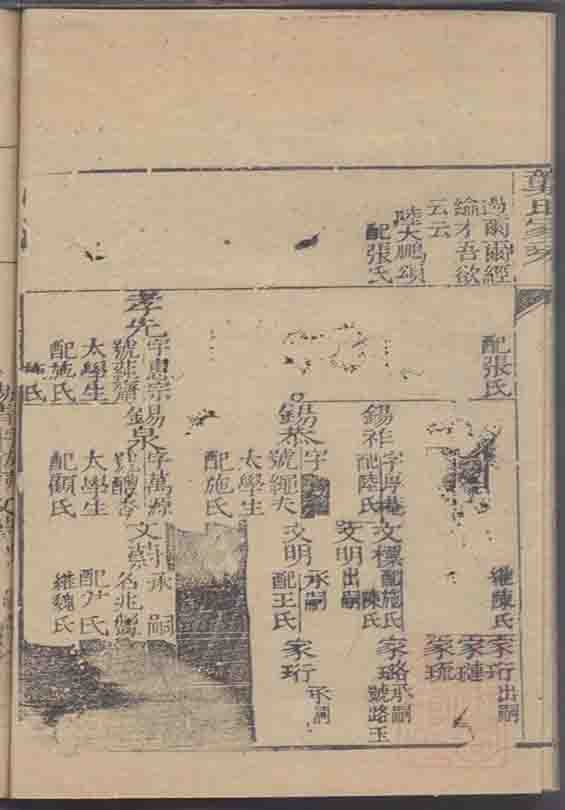 過爾爾經
綸才吾欲
云云
陸大鵬頌
配張氏
配張氏
繼陳氏
家珩出嗣
家璉
家琉
錫祚
配陸氏
文標
配施氏
陳氏
家璐承嗣
號路玉
文明出嗣
錫恭
字
號繩夫
太學生
配施氏
文明承嗣
配王氏
家珩承嗣
孝先
字惠宗
太學生
配施氏
錫泉
字萬源
太學生
配顧氏
承嗣
配尹氏
繼魏氏